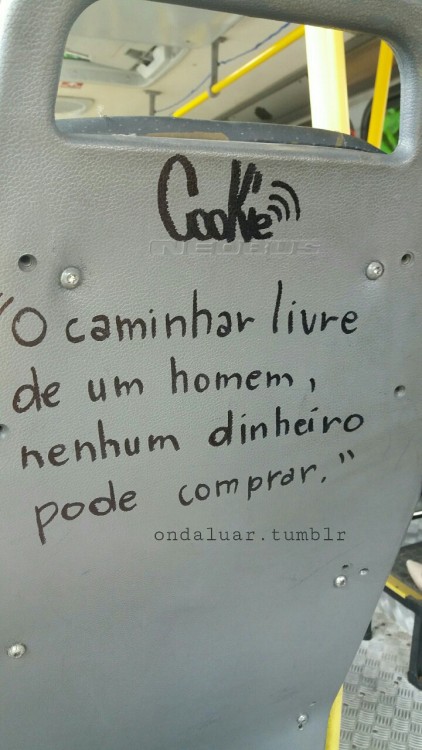 Cookie
NEOBUS
"O caminhar livre
de um homem,
nenhum dinheiro
pode comprar."
ondaluar.tumblr